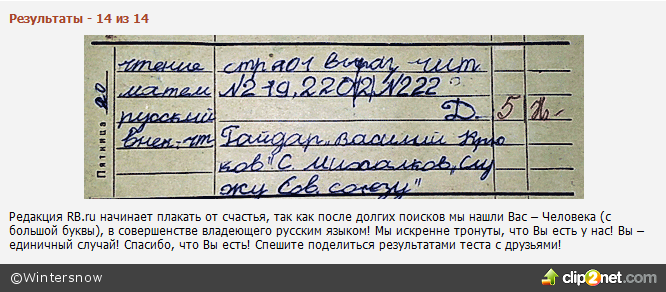 Результаты - 14 из 14
Пятница 20
чтение стр 101 выраз чит
матем №219, 220(2), №222
русский Д. 5
внек. чт Гайдар „Василий Крю
ков" С. Михалков „Слу
жу Сов. союзу"
Редакция RB.ru начинает плакать от счастья, так как после долгих поисков мы нашли Вас – Человека (с
большой буквы), в совершенстве владеющего русским языком! Мы искренне тронуты, что Вы есть у нас! Вы –
единичный случай! Спасибо, что Вы есть! Спешите поделиться результатами теста с друзьями!
©Wintersnow
clip2net.com